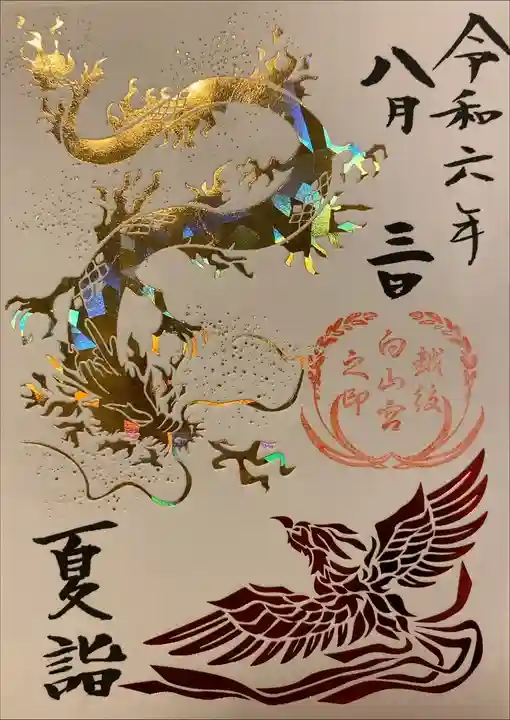 令和六年
八月三日
越後
白山宮
之印
夏詣